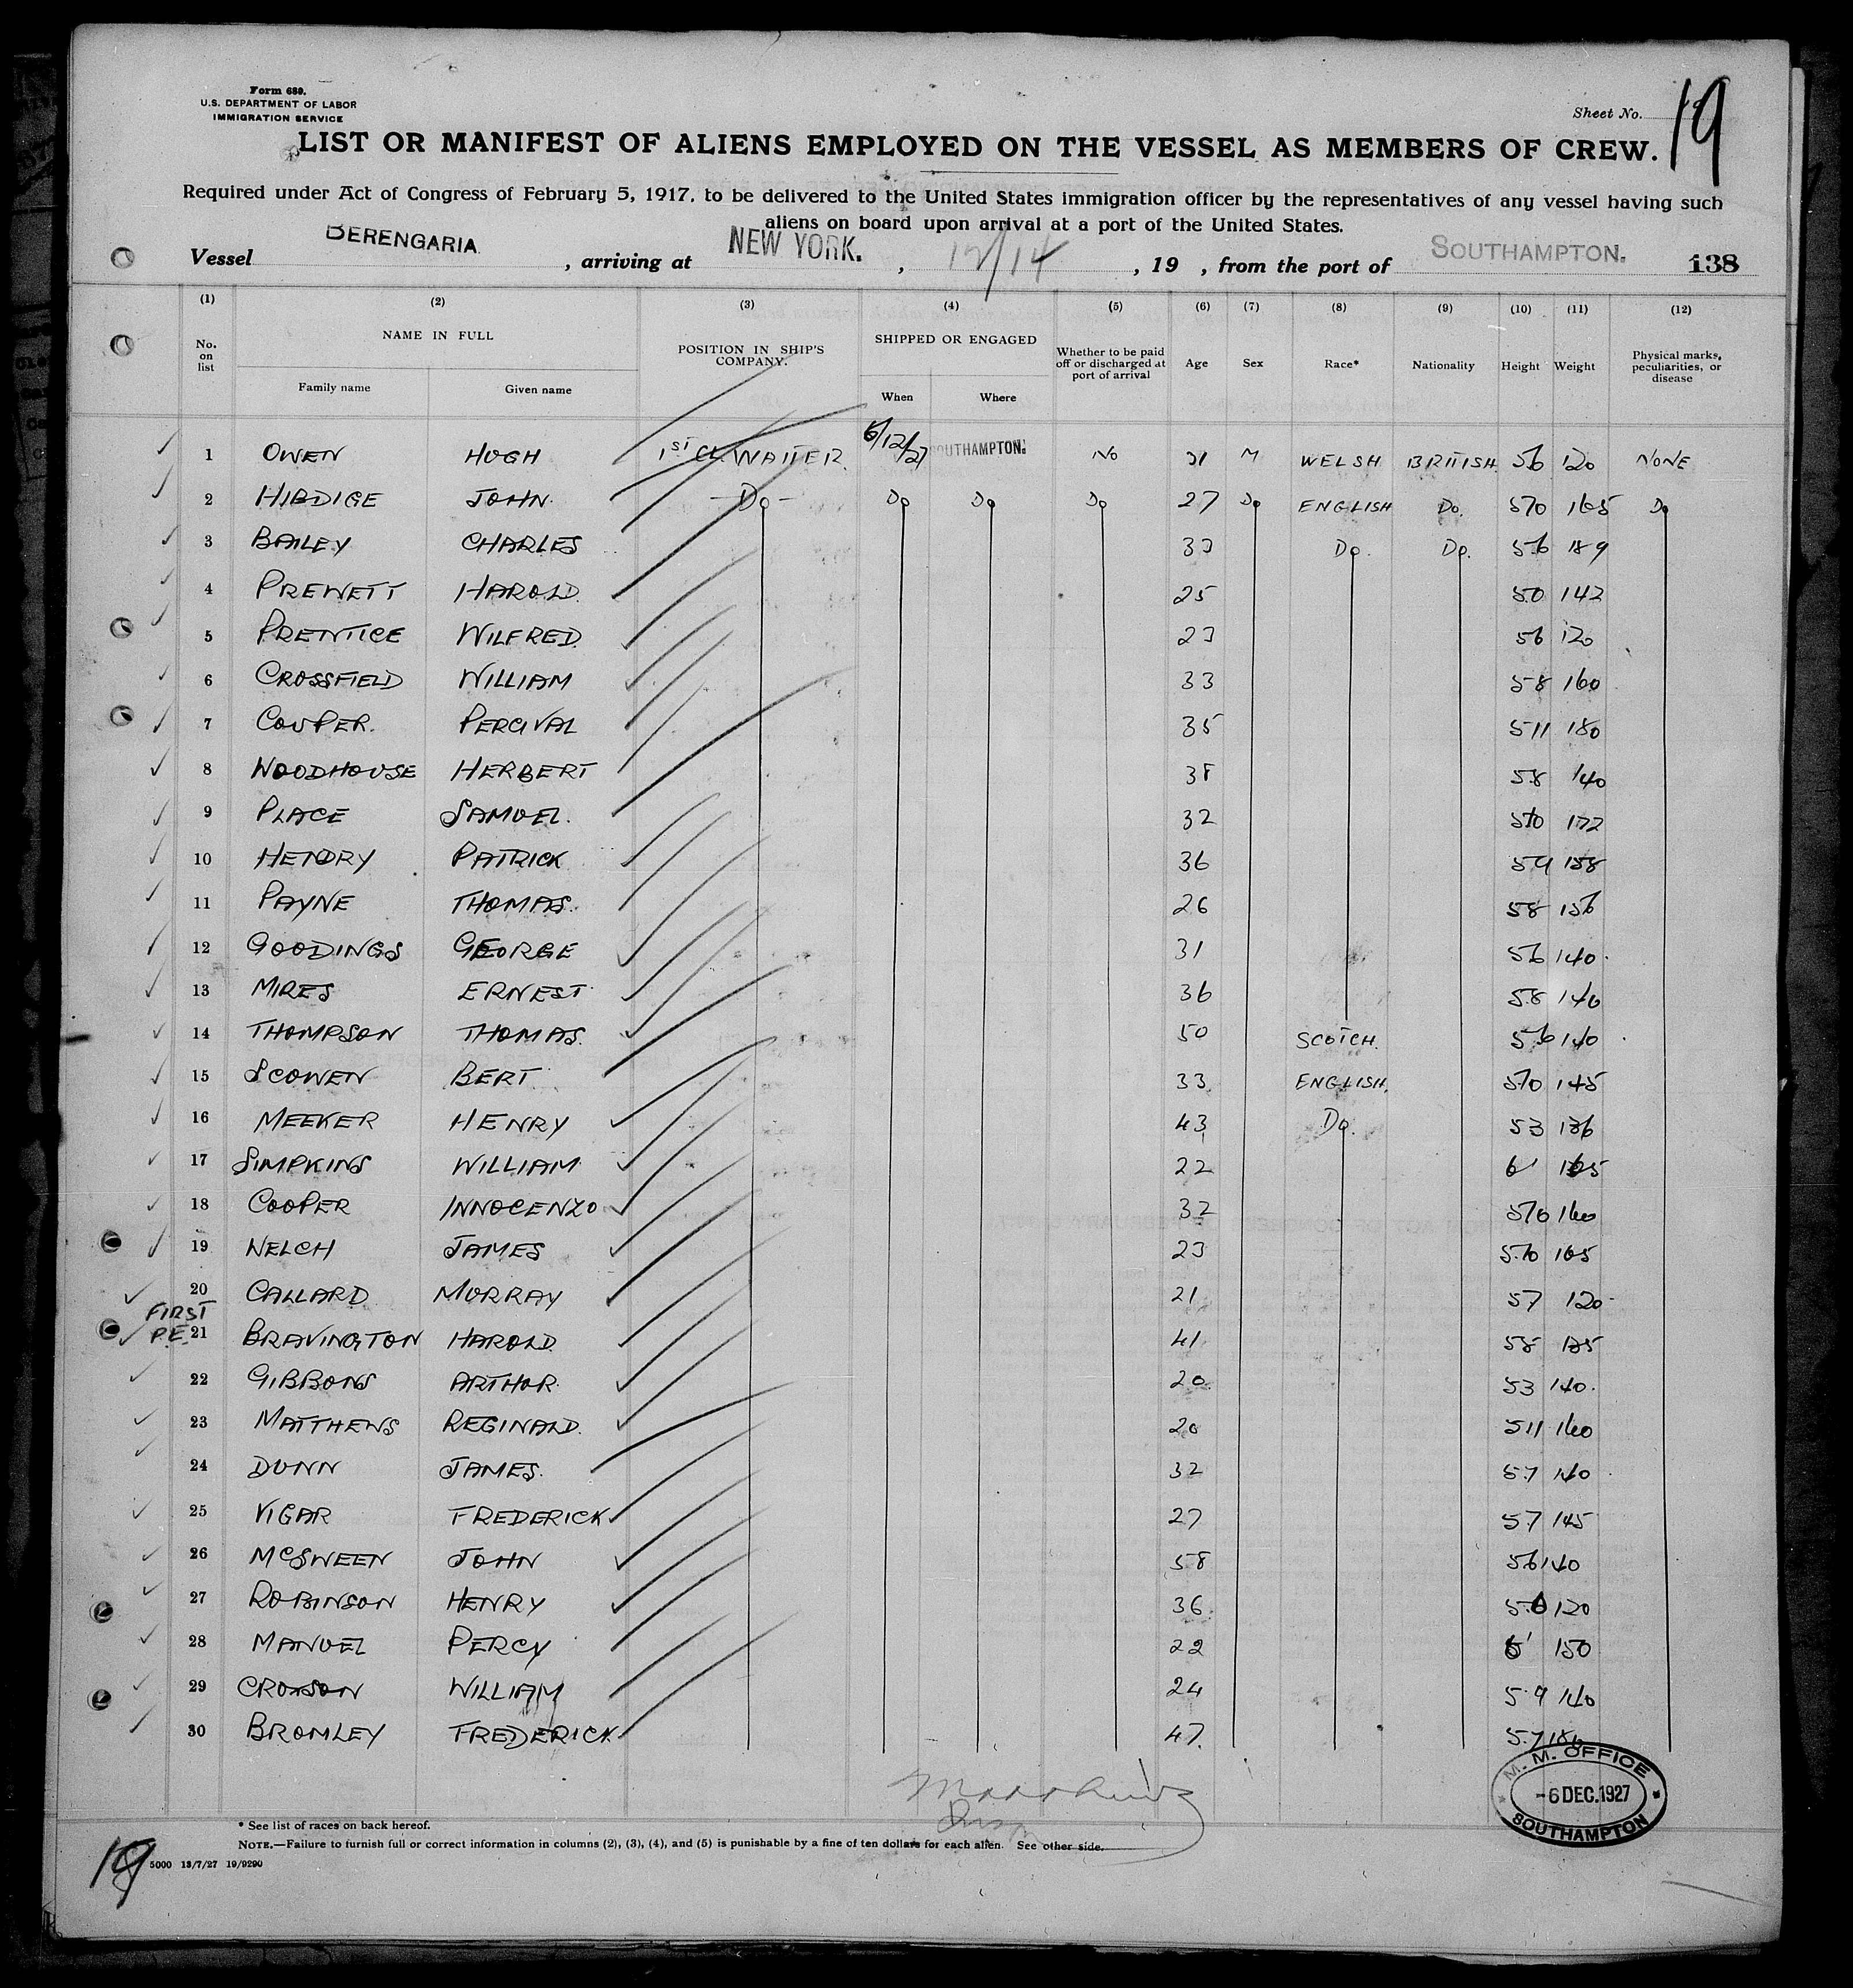 Form 689.
U.S. DEPARTMENT OF LABOR
IMMIGRATION SERVICE
Sheet No. 19
LIST OR MANIFEST OF ALIENS EMPLOYED ON THE VESSEL AS MEMBERS OF CREW.
Required under Act of Congress of February 5, 1917, to be delivered to the United States immigration officer by the representatives of any vessel having such
aliens on board upon arrival at a port of the United States.
Vessel BERENGARIA, arriving at NEW YORK., 12/14, 19 , from the port of SOUTHAMPTON. 138
(1) (2) (3) (4) (5) (6) (7) (8) (9) (10) (11) (12)
No. on list NAME IN FULL POSITION IN SHIP'S COMPANY. SHIPPED OR ENGAGED Whether to be paid off or discharged at port of arrival Age Sex Race* Nationality Height Weight Physical marks, peculiarities, or disease
Family name Given name When Where
1 OWEN HUGH 1ST CL. WAITER. 6/12/27 SOUTHAMPTON. NO 21 M WELSH BRITISH 56 120 NONE
2 HIBDIGE JOHN. -Do- Do Do Do 27 Do ENGLISH Do. 570 165 Do
3 BAILEY CHARLES Do. Do. 56 189
4 PREWETT HAROLD. 25 50 142
5 PRENTICE WILFRED. 23 56 120
6 CROSSFIELD WILLIAM 33 58 160
7 COUPER. PERCIVAL 35 511 180
8 WOODHOUSE HERBERT 38 58 140
9 PLACE SAMUEL. 32 510
10 HENDRY PATRICK 36 59 158
11 PAYNE THOMAS. 26 58 156
12 GOODINGS GEORGE 31 56 140.
13 MIRES ERNEST 36 58 140
14 THOMPSON THOMAS. 50 SCOTCH. 56 140
15 SCOWEN BERT 33 ENGLISH. 510 145
16 MEEKER HENRY 43 Do. 53 136
17 SIMPKINS WILLIAM 22 6'
18 COOPER INNOCENZO 32 510 160
19 WELCH JAMES 23 5.10 165
20 CALLARD MURRAY 21 57 120
FIRST
P.E. 21 BRAVINGTON HAROLD. 41 58
22 GIBBONS ARTHUR. 20 53 140.
23 MATTHEWS REGINALD. 20 511 160
24 DUNN JAMES. 32 5.7 140
25 VIGAR FREDERICK 27 57 145
26 McSWEEN JOHN 58 56 140
27 ROBINSON HENRY 36 5.6 120
28 MANUEL PERCY 22 6' 150
29 CROXSON WILLIAM 24 5.9 140
30 BROMLEY FREDERICK 47. 5.7
M. M. OFFICE
-6 DEC. 1927
SOUTHAMPTON
* See list of races on back hereof.
NOTE.—Failure to furnish full or correct information in columns (2), (3), (4), and (5) is punishable by a fine of ten dollars for each alien. See other side.
19 5000 13/7/27 19/9290